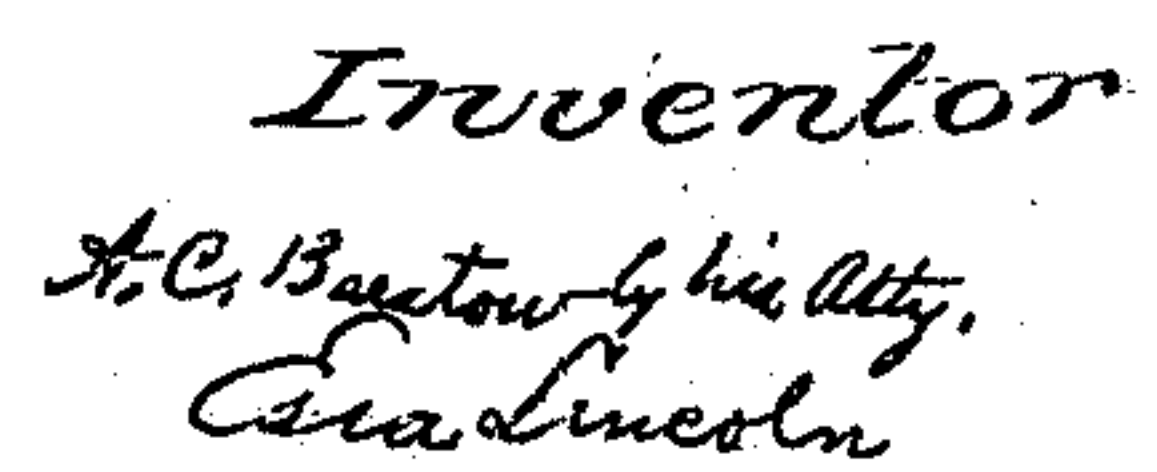 Inventor
A. C. Barstow by his Atty.
Ezra Lincoln